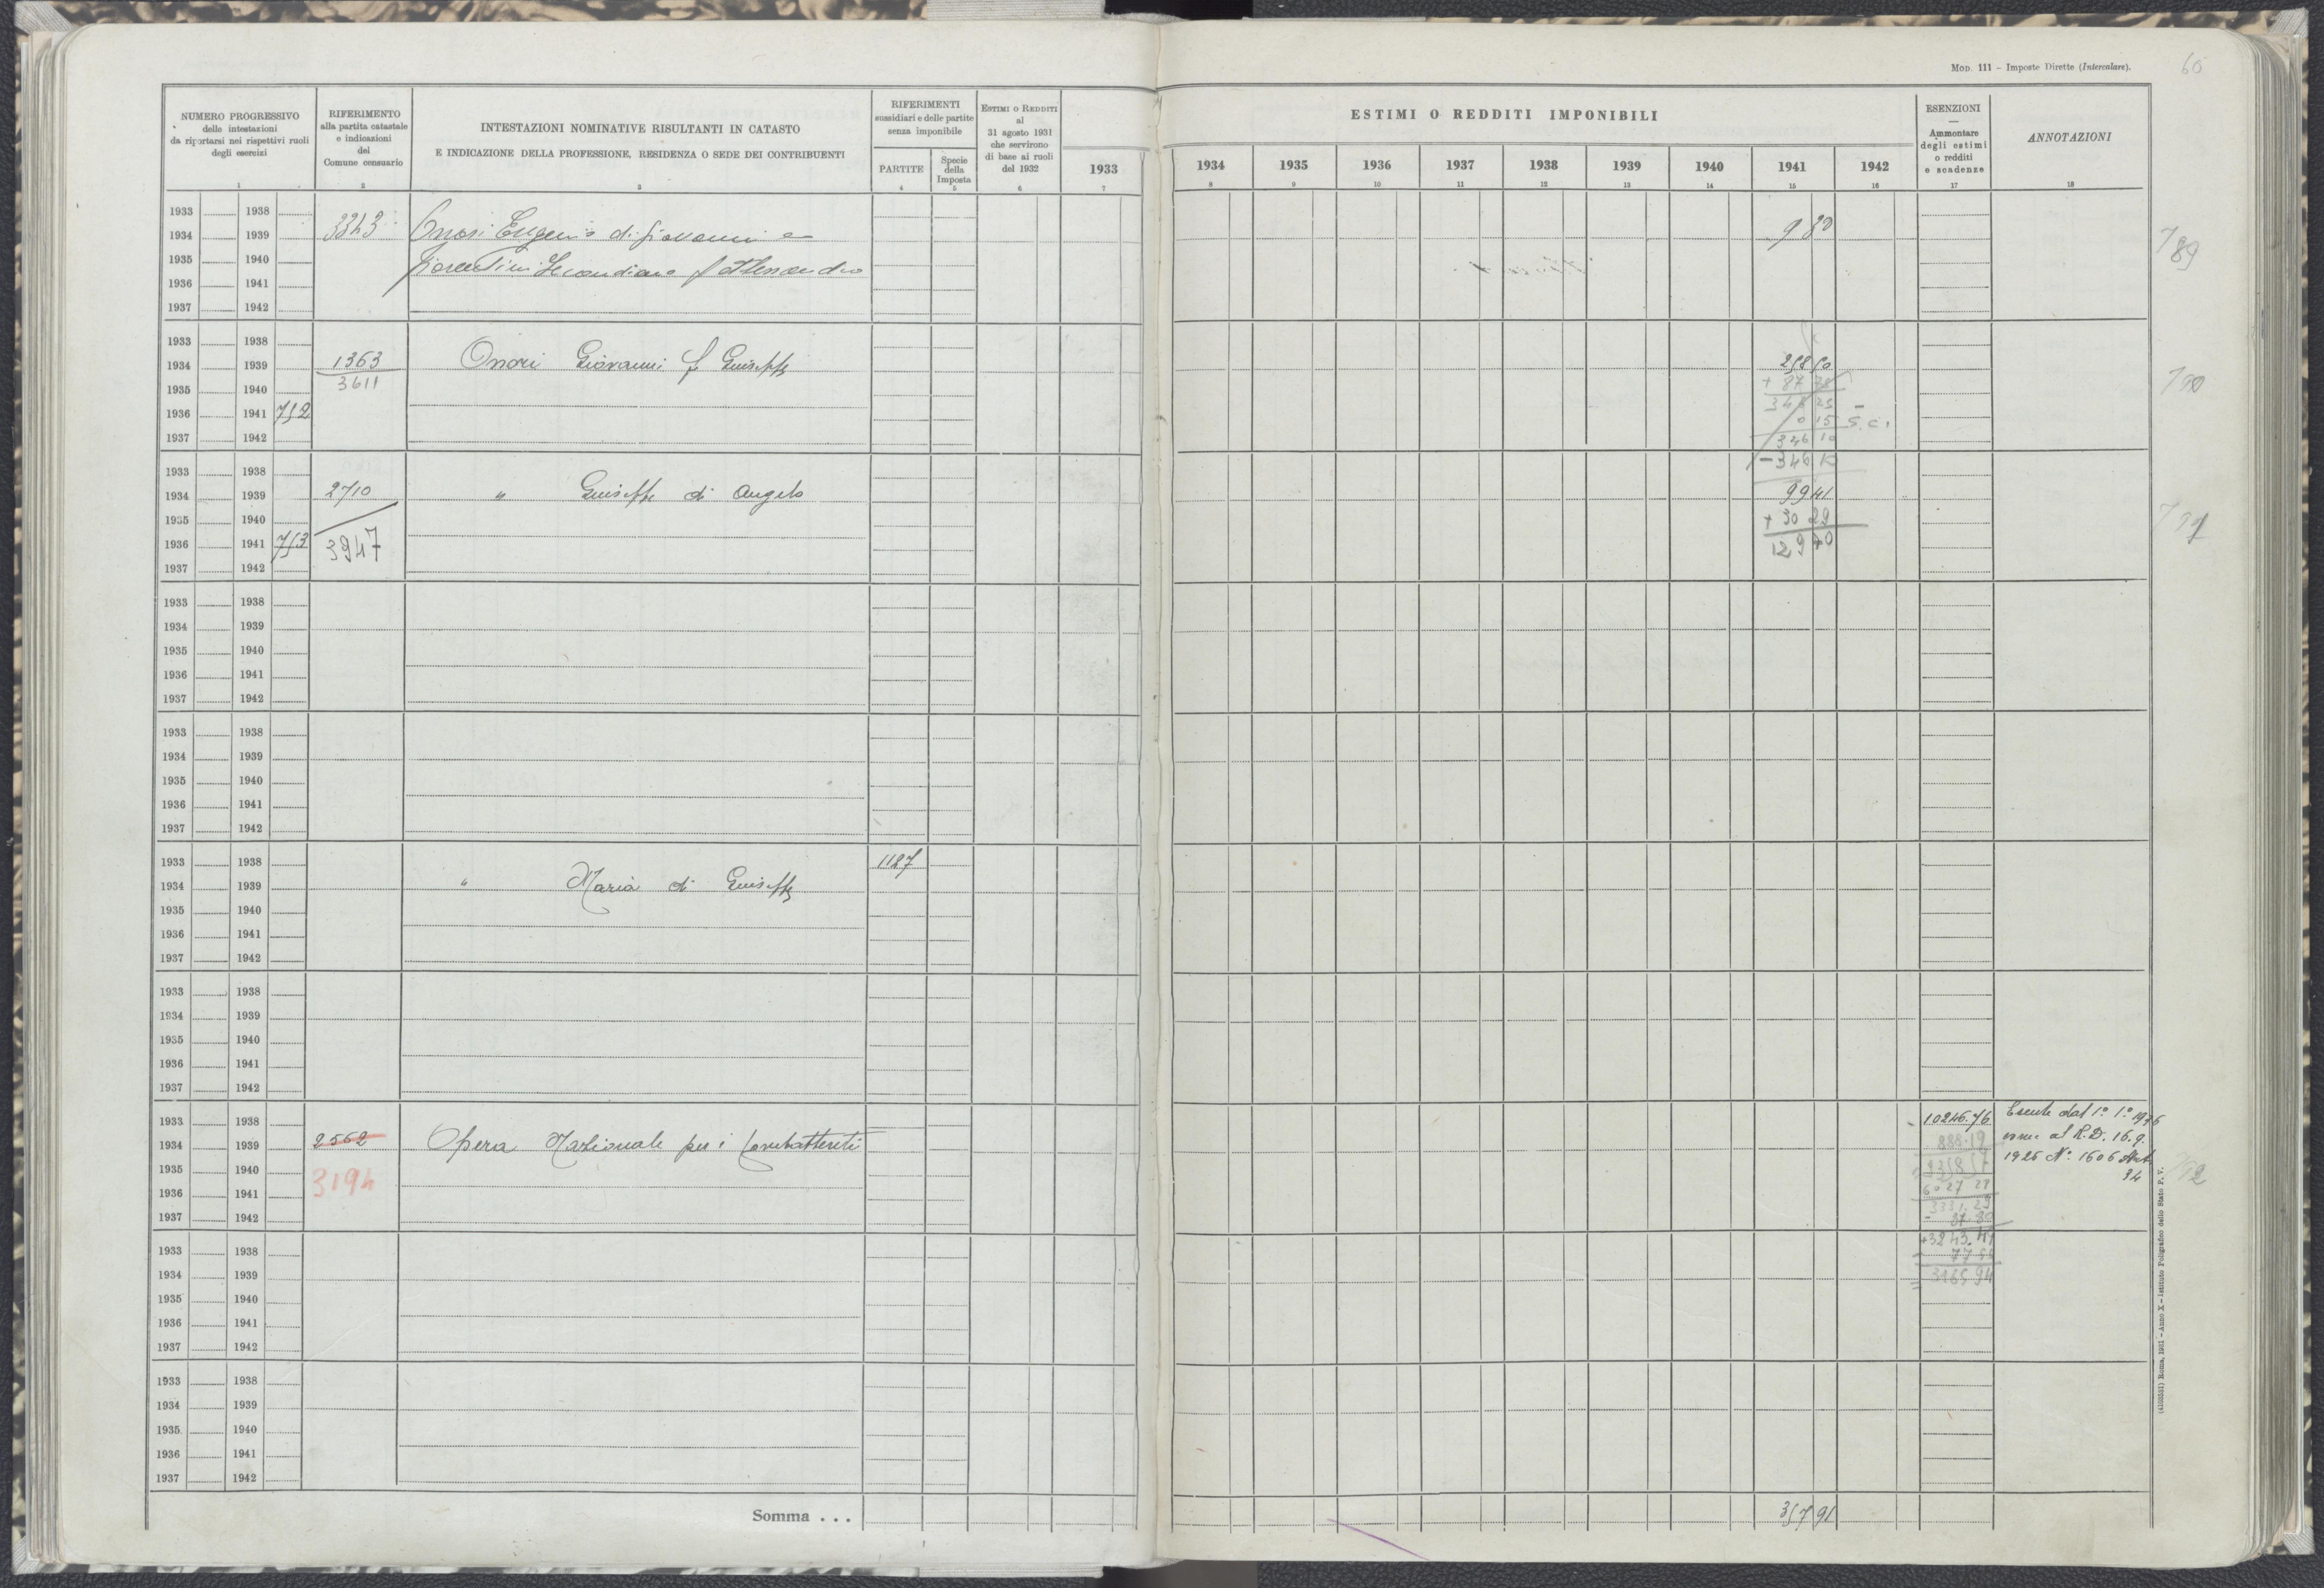 MOD. 111 - Imposte Dirette (Intercalare).
60
NUMERO PROGRESSIVO
delle intestazioni
da riportarsi nei rispettivi ruoli
degli esercizi
1
RIFERIMENTO
alla partita catastale
e indicazioni
del
Comune censuario
2
INTESTAZIONI NOMINATIVE RISULTANTI IN CATASTO
E INDICAZIONE DELLA PROFESSIONE, RESIDENZA O SEDE DEI CONTRIBUENTI
3
RIFERIMENTI
sussidiari e delle partite
senza imponibile
PARTITE
4
Specie
della
Imposta
5
ESTIMI O REDDITI
al
31 agosto 1931
che servirono
di base ai ruoli
del 1932
6
1933
7
ESTIMI O REDDITI IMPONIBILI
1934 1935 1936 1937 1938 1939 1940 1941 1942
8 9 10 11 12 13 14 15 16
ESENZIONI
—
Ammontare
degli estimi
o redditi
e scadenze
17
ANNOTAZIONI
18
1933 1938
1934 1939 3343 Onori Eugenio di Giovanni e 9 80 789
1935 1940 Fiorentini Secondiano f Alessandro
1936 1941
1937 1942
1933 1938
1934 1939 1363 Onori Giovanni f Giuseppe 258 50 790
1935 1940 3611 + 87 75
1936 1941 752 346 25 -
1937 1942 0 15 s.c.
346 10
- 346 10
1933 1938
1934 1939 2710 " Giuseppe di Angelo 99 41 791
1935 1940 + 30 29
1936 1941 753 3947 129 70
1937 1942
1933 1938
1934 1939
1935 1940
1936 1941
1937 1942
1933 1938
1934 1939
1935 1940
1936 1941
1937 1942
1933 1938 1127
1934 1939 " Maria di Giuseppe
1935 1940
1936 1941
1937 1942
1933 1938
1934 1939
1935 1940
1936 1941
1937 1942
1933 1938 10246.76 Esente dal 1° 1° 1926
1934 1939 2562 Opera Nazionale per i Combattenti 888.19 al R.D. 16.9.
1935 1940 3194 1926 N° 1606 Art. 792
1936 1941 6027 28 34
1937 1942 3331.29
- 87.80
1933 1938 +3243.49
1934 1939 3165 94
1935 1940
1936 1941
1937 1942
1933 1938
1934 1939
1935 1940
1936 1941
1937 1942
Somma . . . 357 91
(4103581) Roma, 1931 - Anno X - Istituto Poligrafico dello Stato P. V.